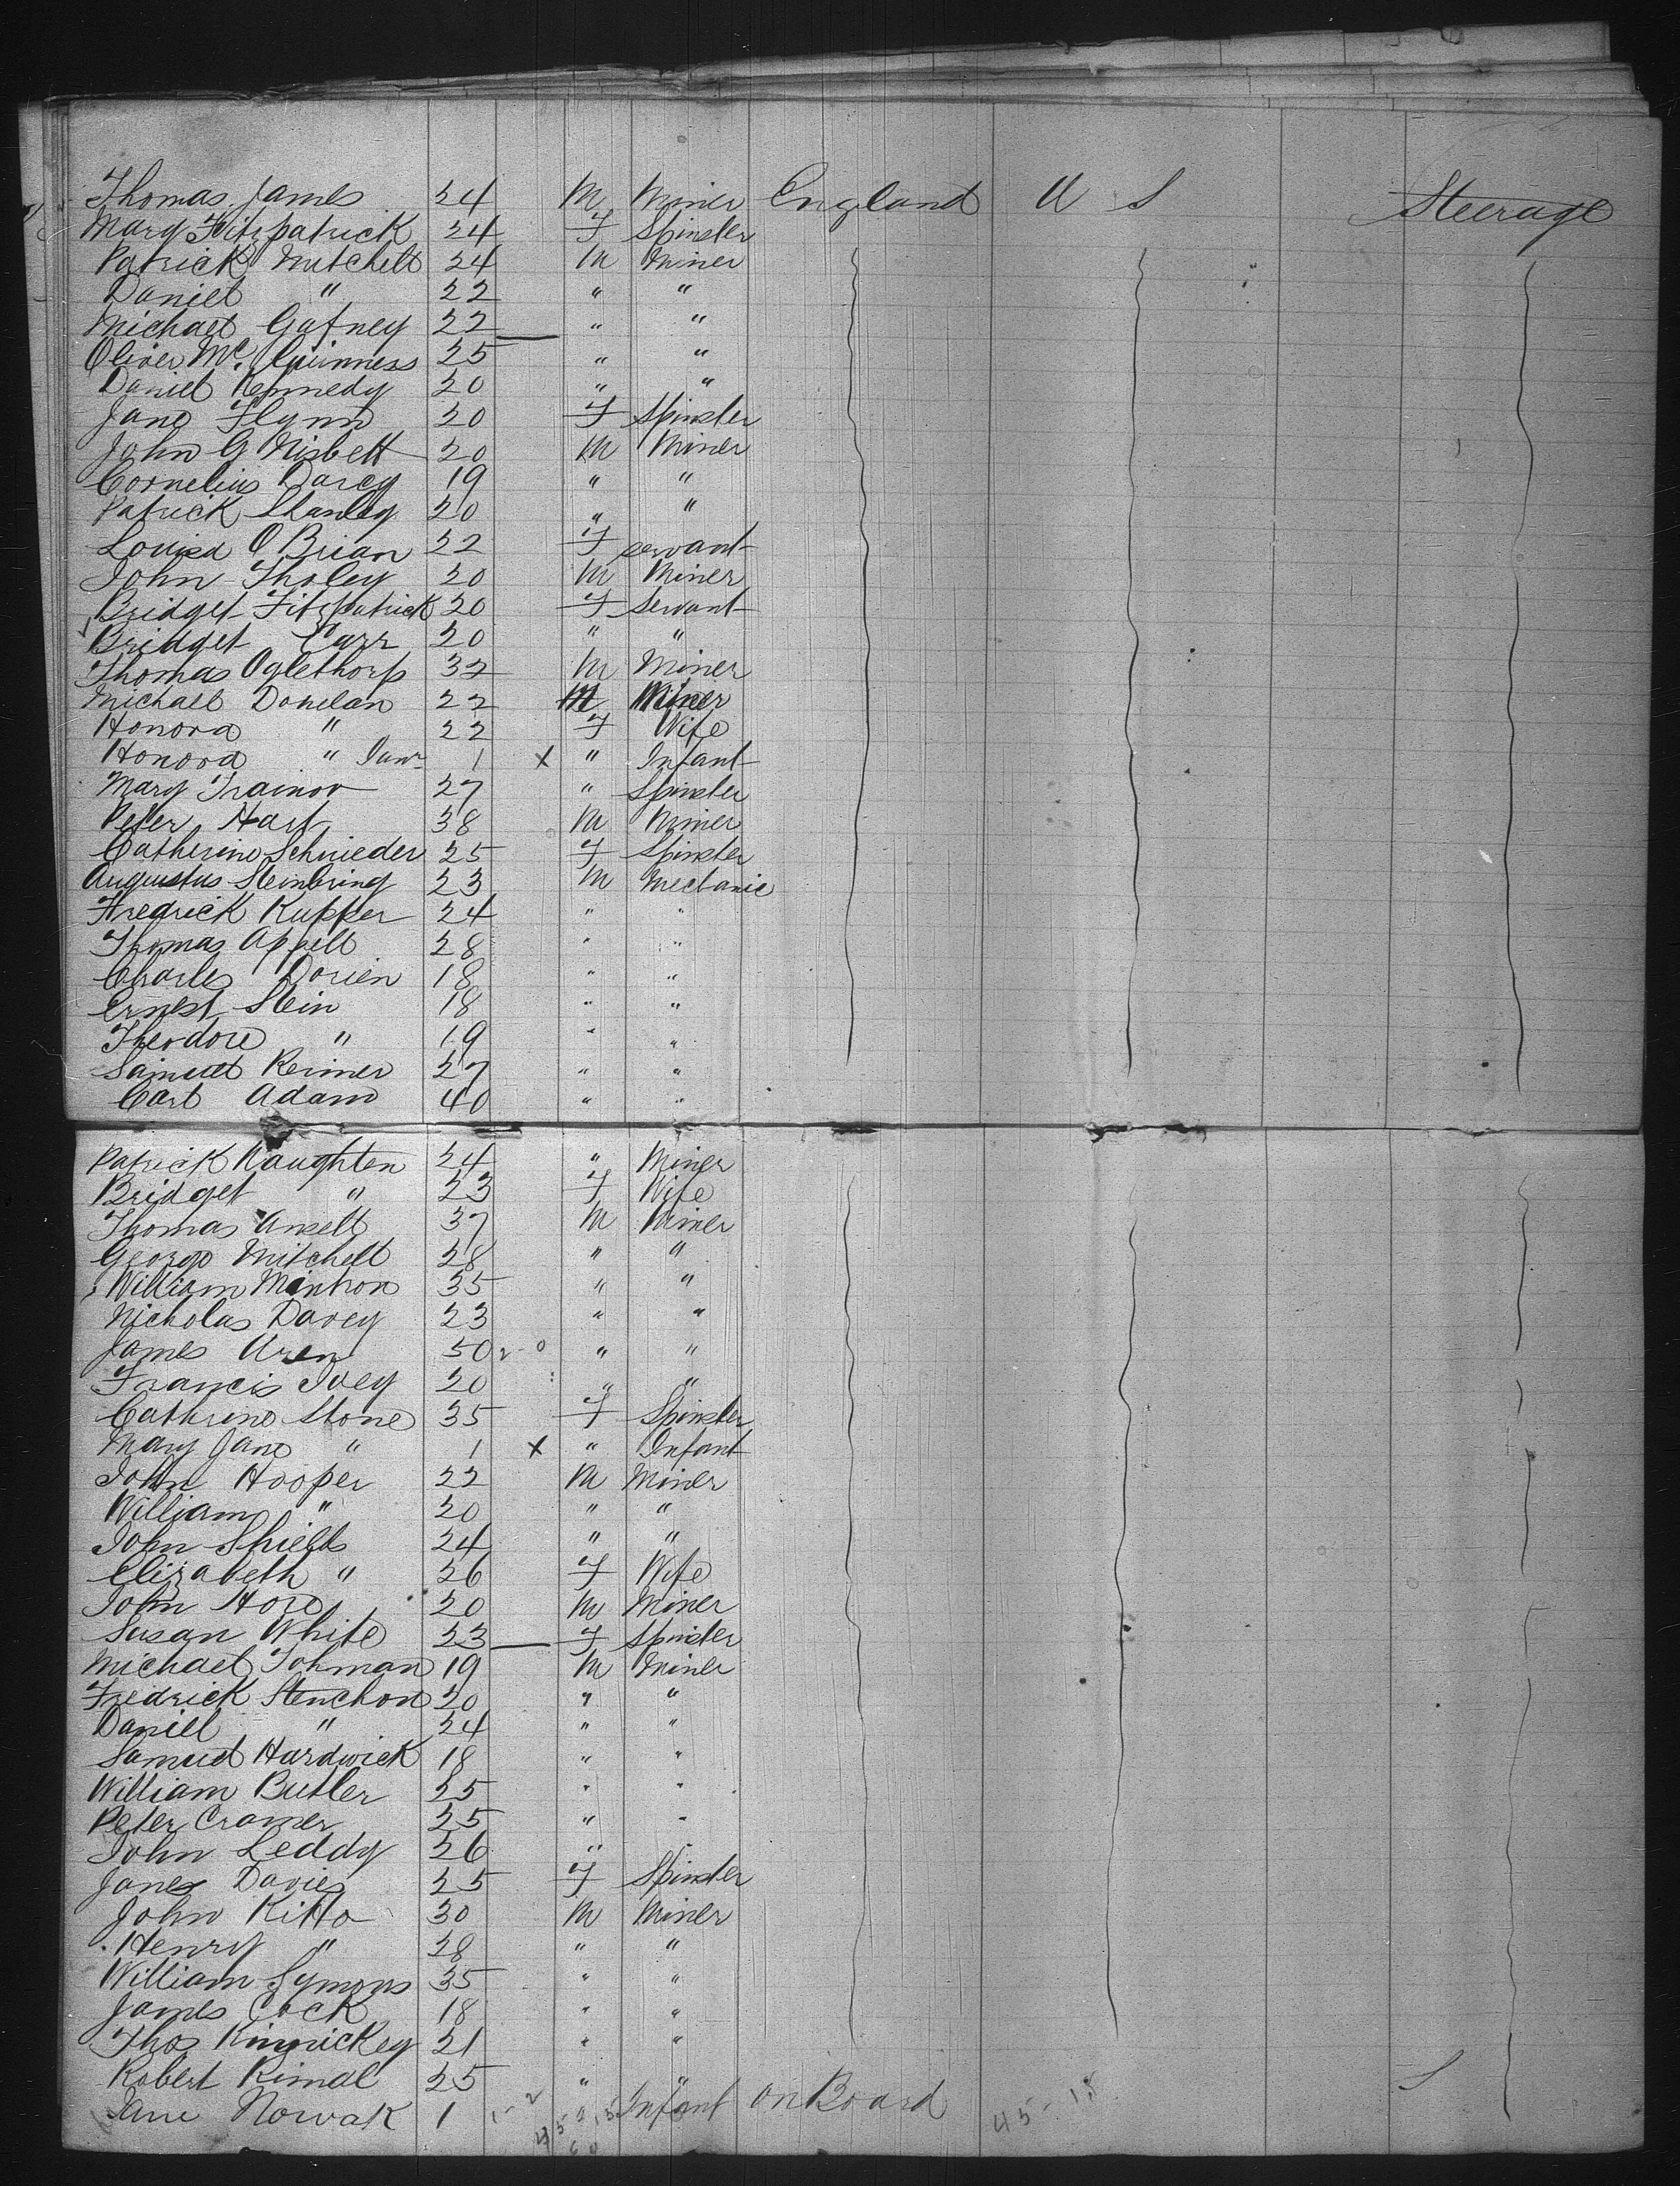 Thomas James 24 M Miner England U S Steerage
Mary Fitzpatrick 24 F Spinster
Patrick Mitchell 24 M Miner
Daniel " 22 " "
Michael Gafney 22 " "
Oliver Mc Guinness 25 " "
Daniel Kennedy 20 " "
Jane Flynn 20 F Spinster
John G Nisbett 20 M Miner
Cornelius Darcy 19 " "
Patrick Stanley 20 " "
Louisa O Brian 22 F servant
John Tholey 20 M Miner
Bridget Fitzpatrick 20 F Servant
Bridget Carr 20 " "
Thomas Oglethorp 32 M Miner
Michael Donelan 22 M Miner
Honora " 22 F Wife
Honora " Junr 1 x " Infant
Mary Trainor 27 " Spinster
Peter Hart 38 M Miner
Catherine Schnieder 25 F Spinster
Augustus Steinbring 23 M Mechanic
Fredrick Kupper 24 " "
Thomas Appell 28 " "
Charles Dorien 18 " "
Ernest Stein 18 " "
Theodore " 19 " "
Samuel Reimer 27 " "
Carl Adam 40 " "
Patrick Naughten 24 " Miner
Bridget " 23 F Wife
Thomas Ansell 37 M Miner
George Mitchell 28 " "
William Mintron 35 " "
Nicholas Davey 23 " "
James Uren 50 " "
Francis Ivey 20 " "
Cathrine Stone 35 F Spinster
Mary Jane " 1 x " Infant
John Hooper 22 M Miner
William " 20 " "
John Shields 24 " "
Elizabeth " 26 F Wife
John Hore 20 M Miner
Susan White 23 F Spinster
Michael Tohman 19 M Miner
Fredrick Stenchon 20 " "
Daniel " 24 " "
Samuel Hardwick 18 " "
William Butler 25 " "
Peter Cramer 25 " "
John Leddy 26 "
Jane Davies 25 F Spinster
John Kitto 30 M Miner
Henry " 28 " "
William Symons 35 " "
James Cock 18 " "
Thos Kinnickey 21 " "
Robert Rimal 25 " "
Jane Nowak 1 Infant on Board